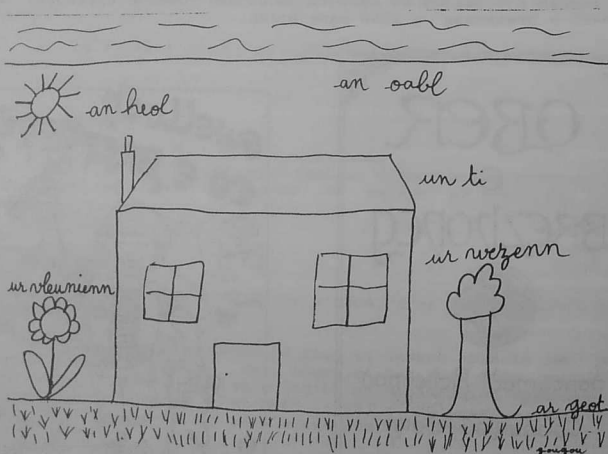 an oabl
an heol
un ti
ur wezenn
ur vleunienn
ar geot
gougou